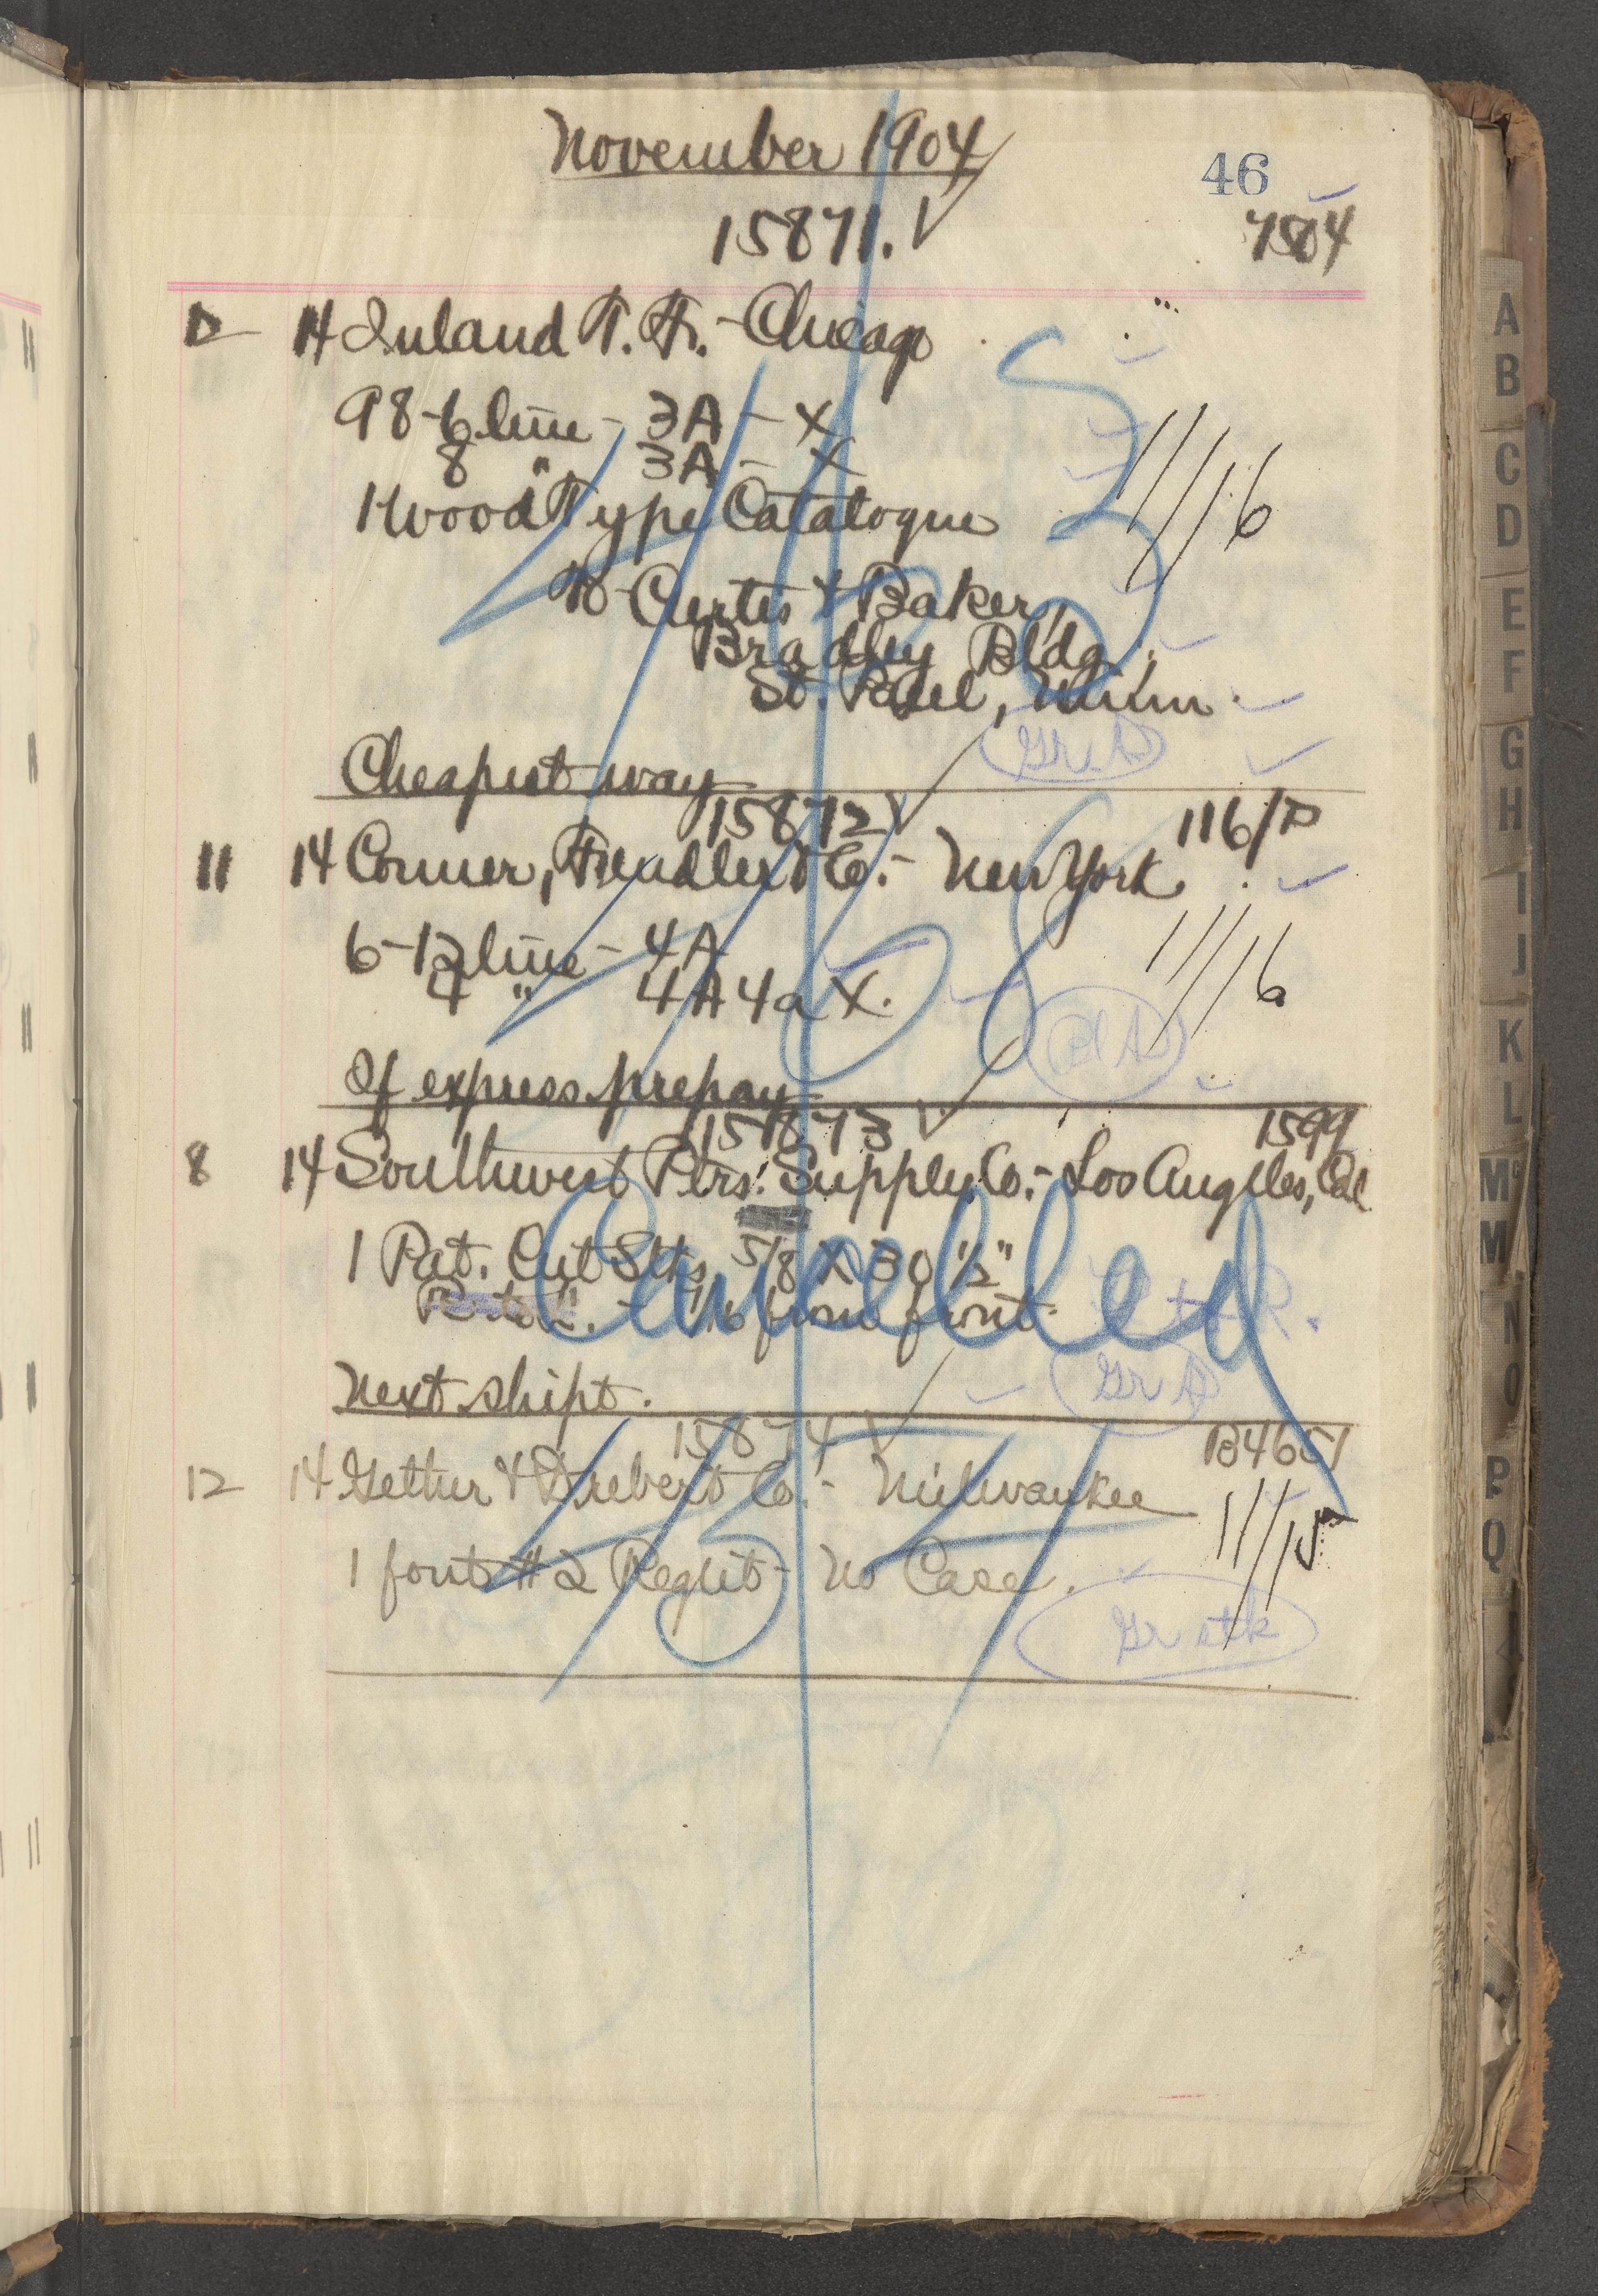 November 1904
46
15871.
7504
12 14 Inland T. F. - Chicago
98-6 line - 3A - X
8 " 3A - X
1 Wood Type Catalogue
11/16
To Curtis & Baker,
Bradley Bldg.
St. Paul, Minn.
Gr. A
Cheapest way
15872
116/12
11 14 Conner, Fendler & Co. - New York
6-12 line - 4A
4 " 4A 4a X.
11/16
If express prepay
15873
1599
8 14 Southwest Ptrs! Supply Co. - Los Angeles, Cal
1 Pat. Cut Stks 5/8 X 30 1/2"
from front
Cancelled
Next shipt.
Gr A
15874
B4651
12 14 Gether & Drebert Co. - Milwaukee
11/15
1 font #2 Reglet - No Case.
Gr stk
A
B
C
D
E
F
G
H
I
J
K
L
Mc
M
N
O
P
Q